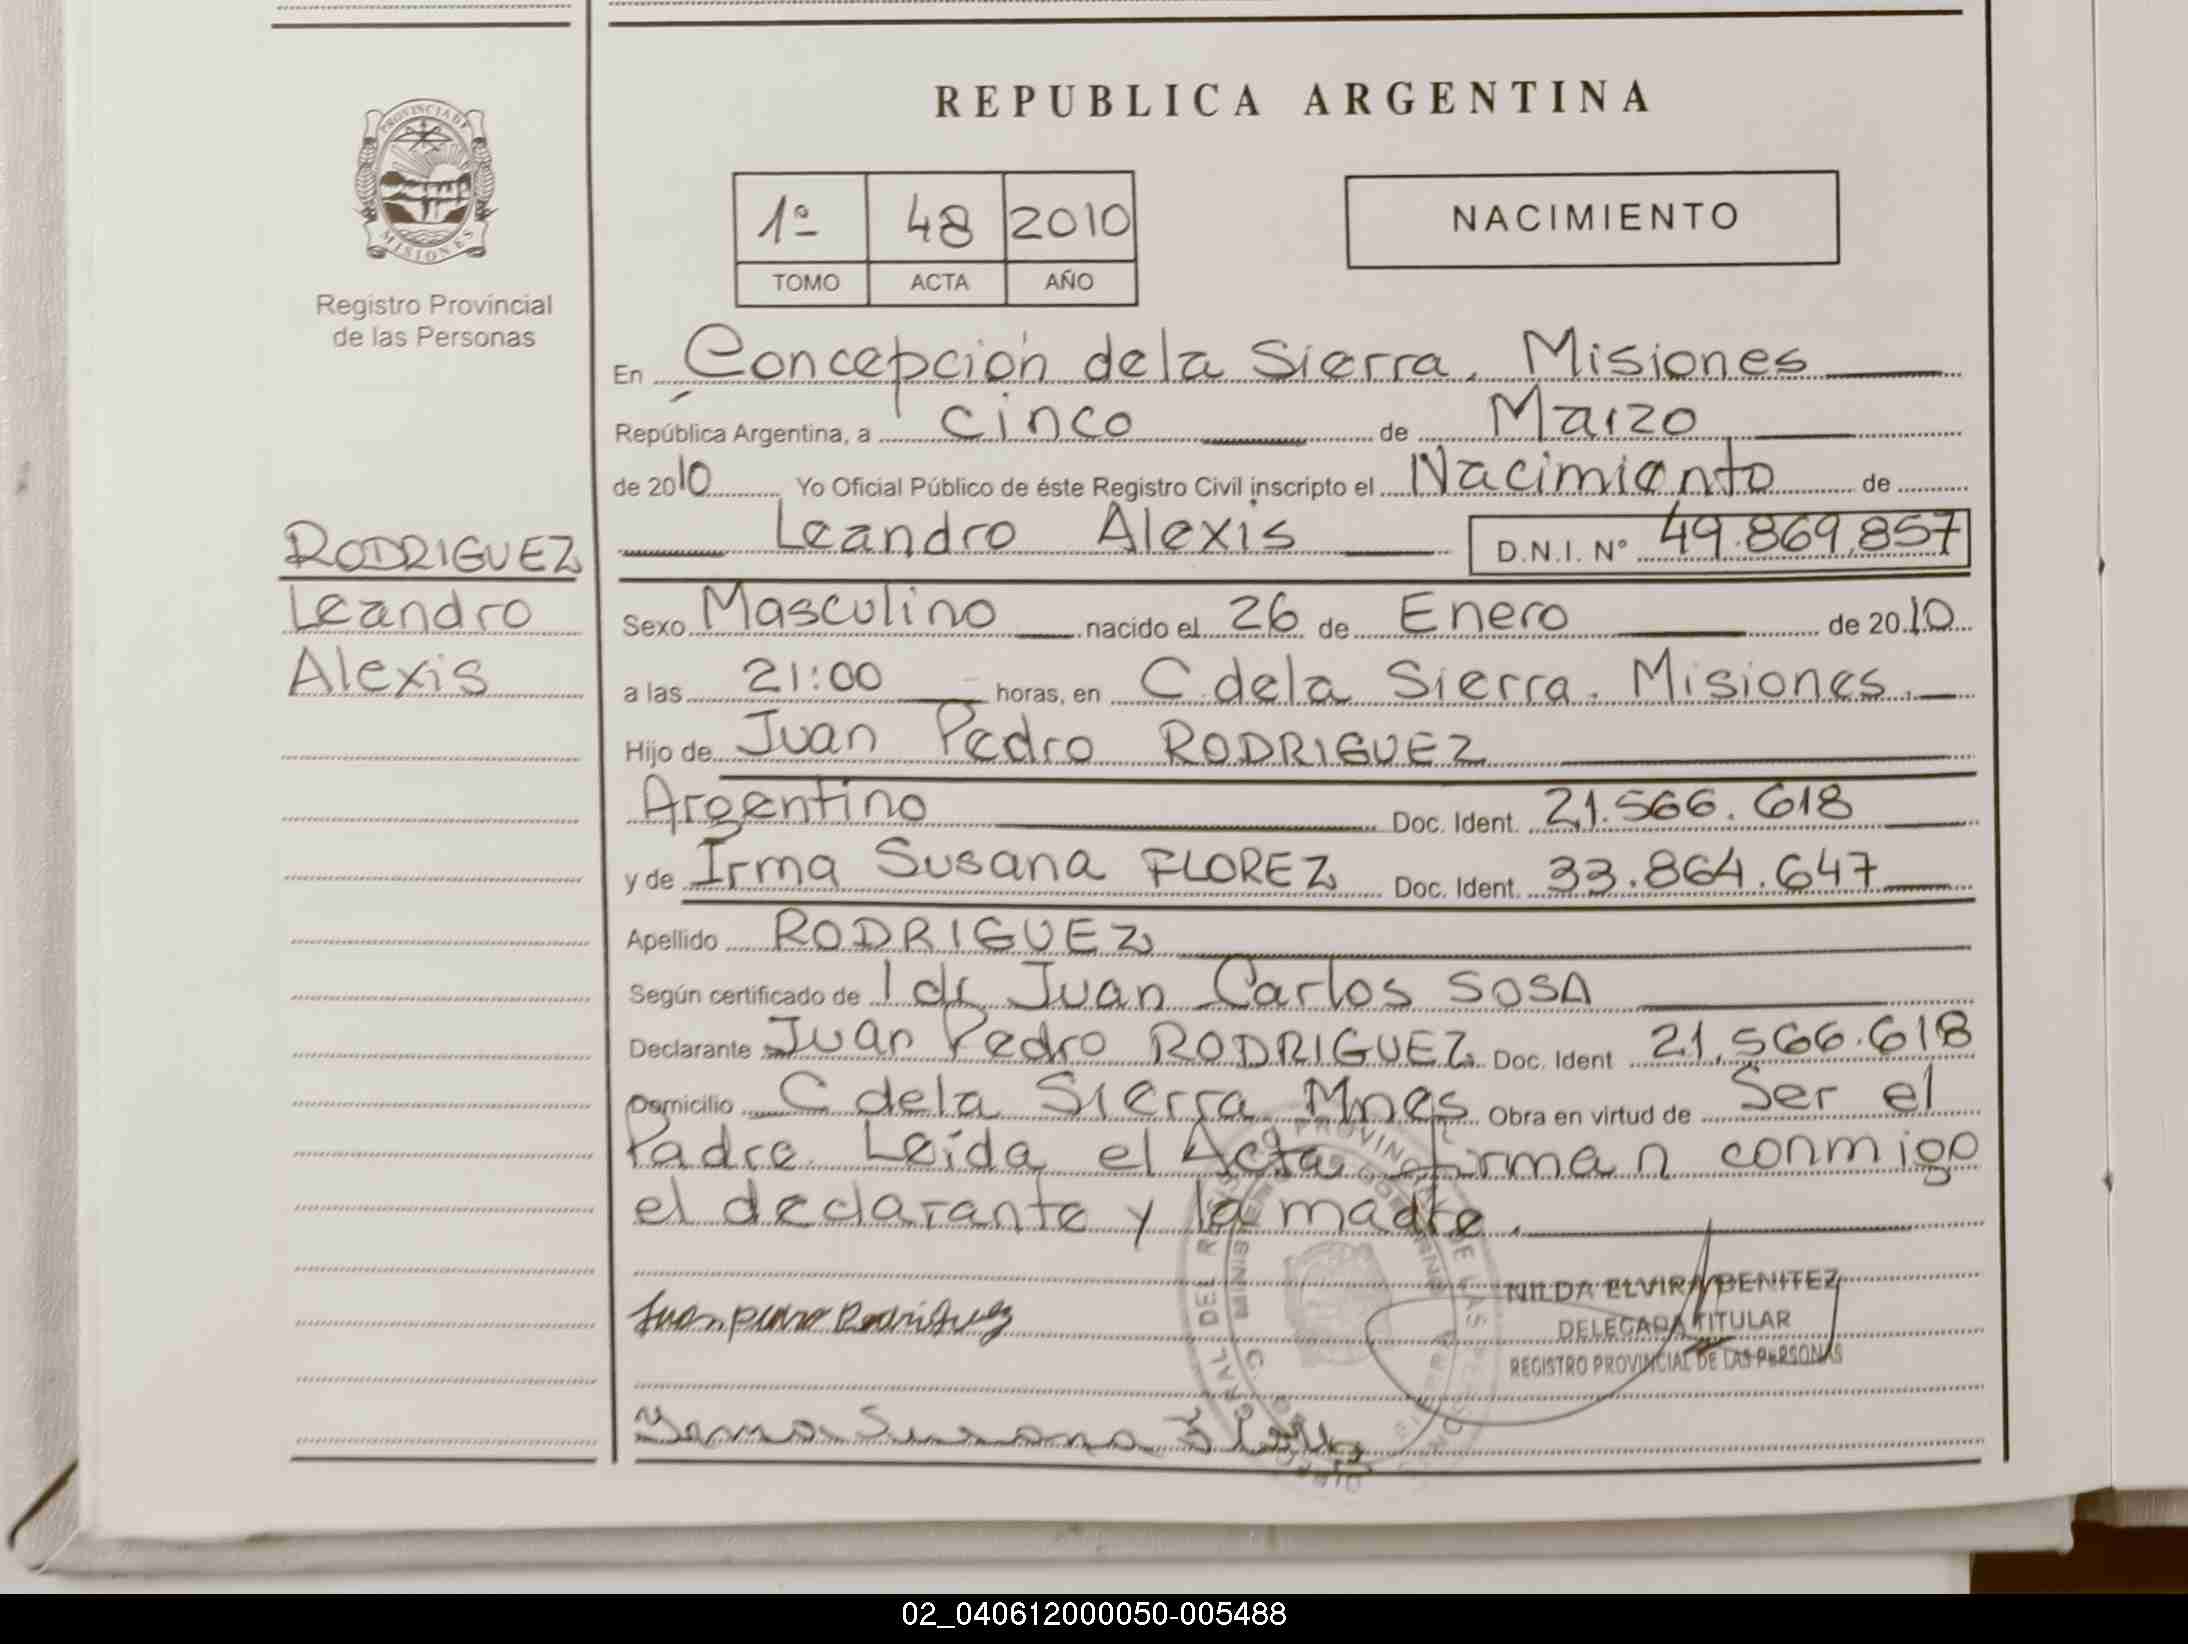 REPUBLICA ARGENTINA
PROVINCIA DE
MISIONES
Registro Provincial
de las Personas
1º 48 2010
TOMO ACTA AÑO
NACIMIENTO
En Concepción de la Sierra. Misiones
República Argentina, a cinco de Marzo
de 2010 Yo Oficial Público de éste Registro Civil inscripto el Nacimiento de
Leandro Alexis D.N.I. Nº 49.869.857
RODRIGUEZ
Leandro
Alexis
Sexo Masculino nacido el 26 de Enero de 2010
a las 21:00 horas, en C de la Sierra. Misiones.
Hijo de Juan Pedro RODRIGUEZ
Argentino Doc. Ident. 21.566.618
y de Irma Susana FLOREZ Doc. Ident. 33.864.647
Apellido RODRIGUEZ
Según certificado de 1 dr Juan Carlos SOSA
Declarante Juan Pedro RODRIGUEZ Doc. Ident 21.566.618
Domicilio C de la Sierra Mnes Obra en virtud de Ser el
Padre. Leída el Acta firman conmigo
el declarante y la madre.
Juan pedro Rodriguez
NILDA ELVIRA BENITEZ
DELEGADA TITULAR
REGISTRO PROVINCIAL DE LAS PERSONAS
Susana
02_040612000050-005488